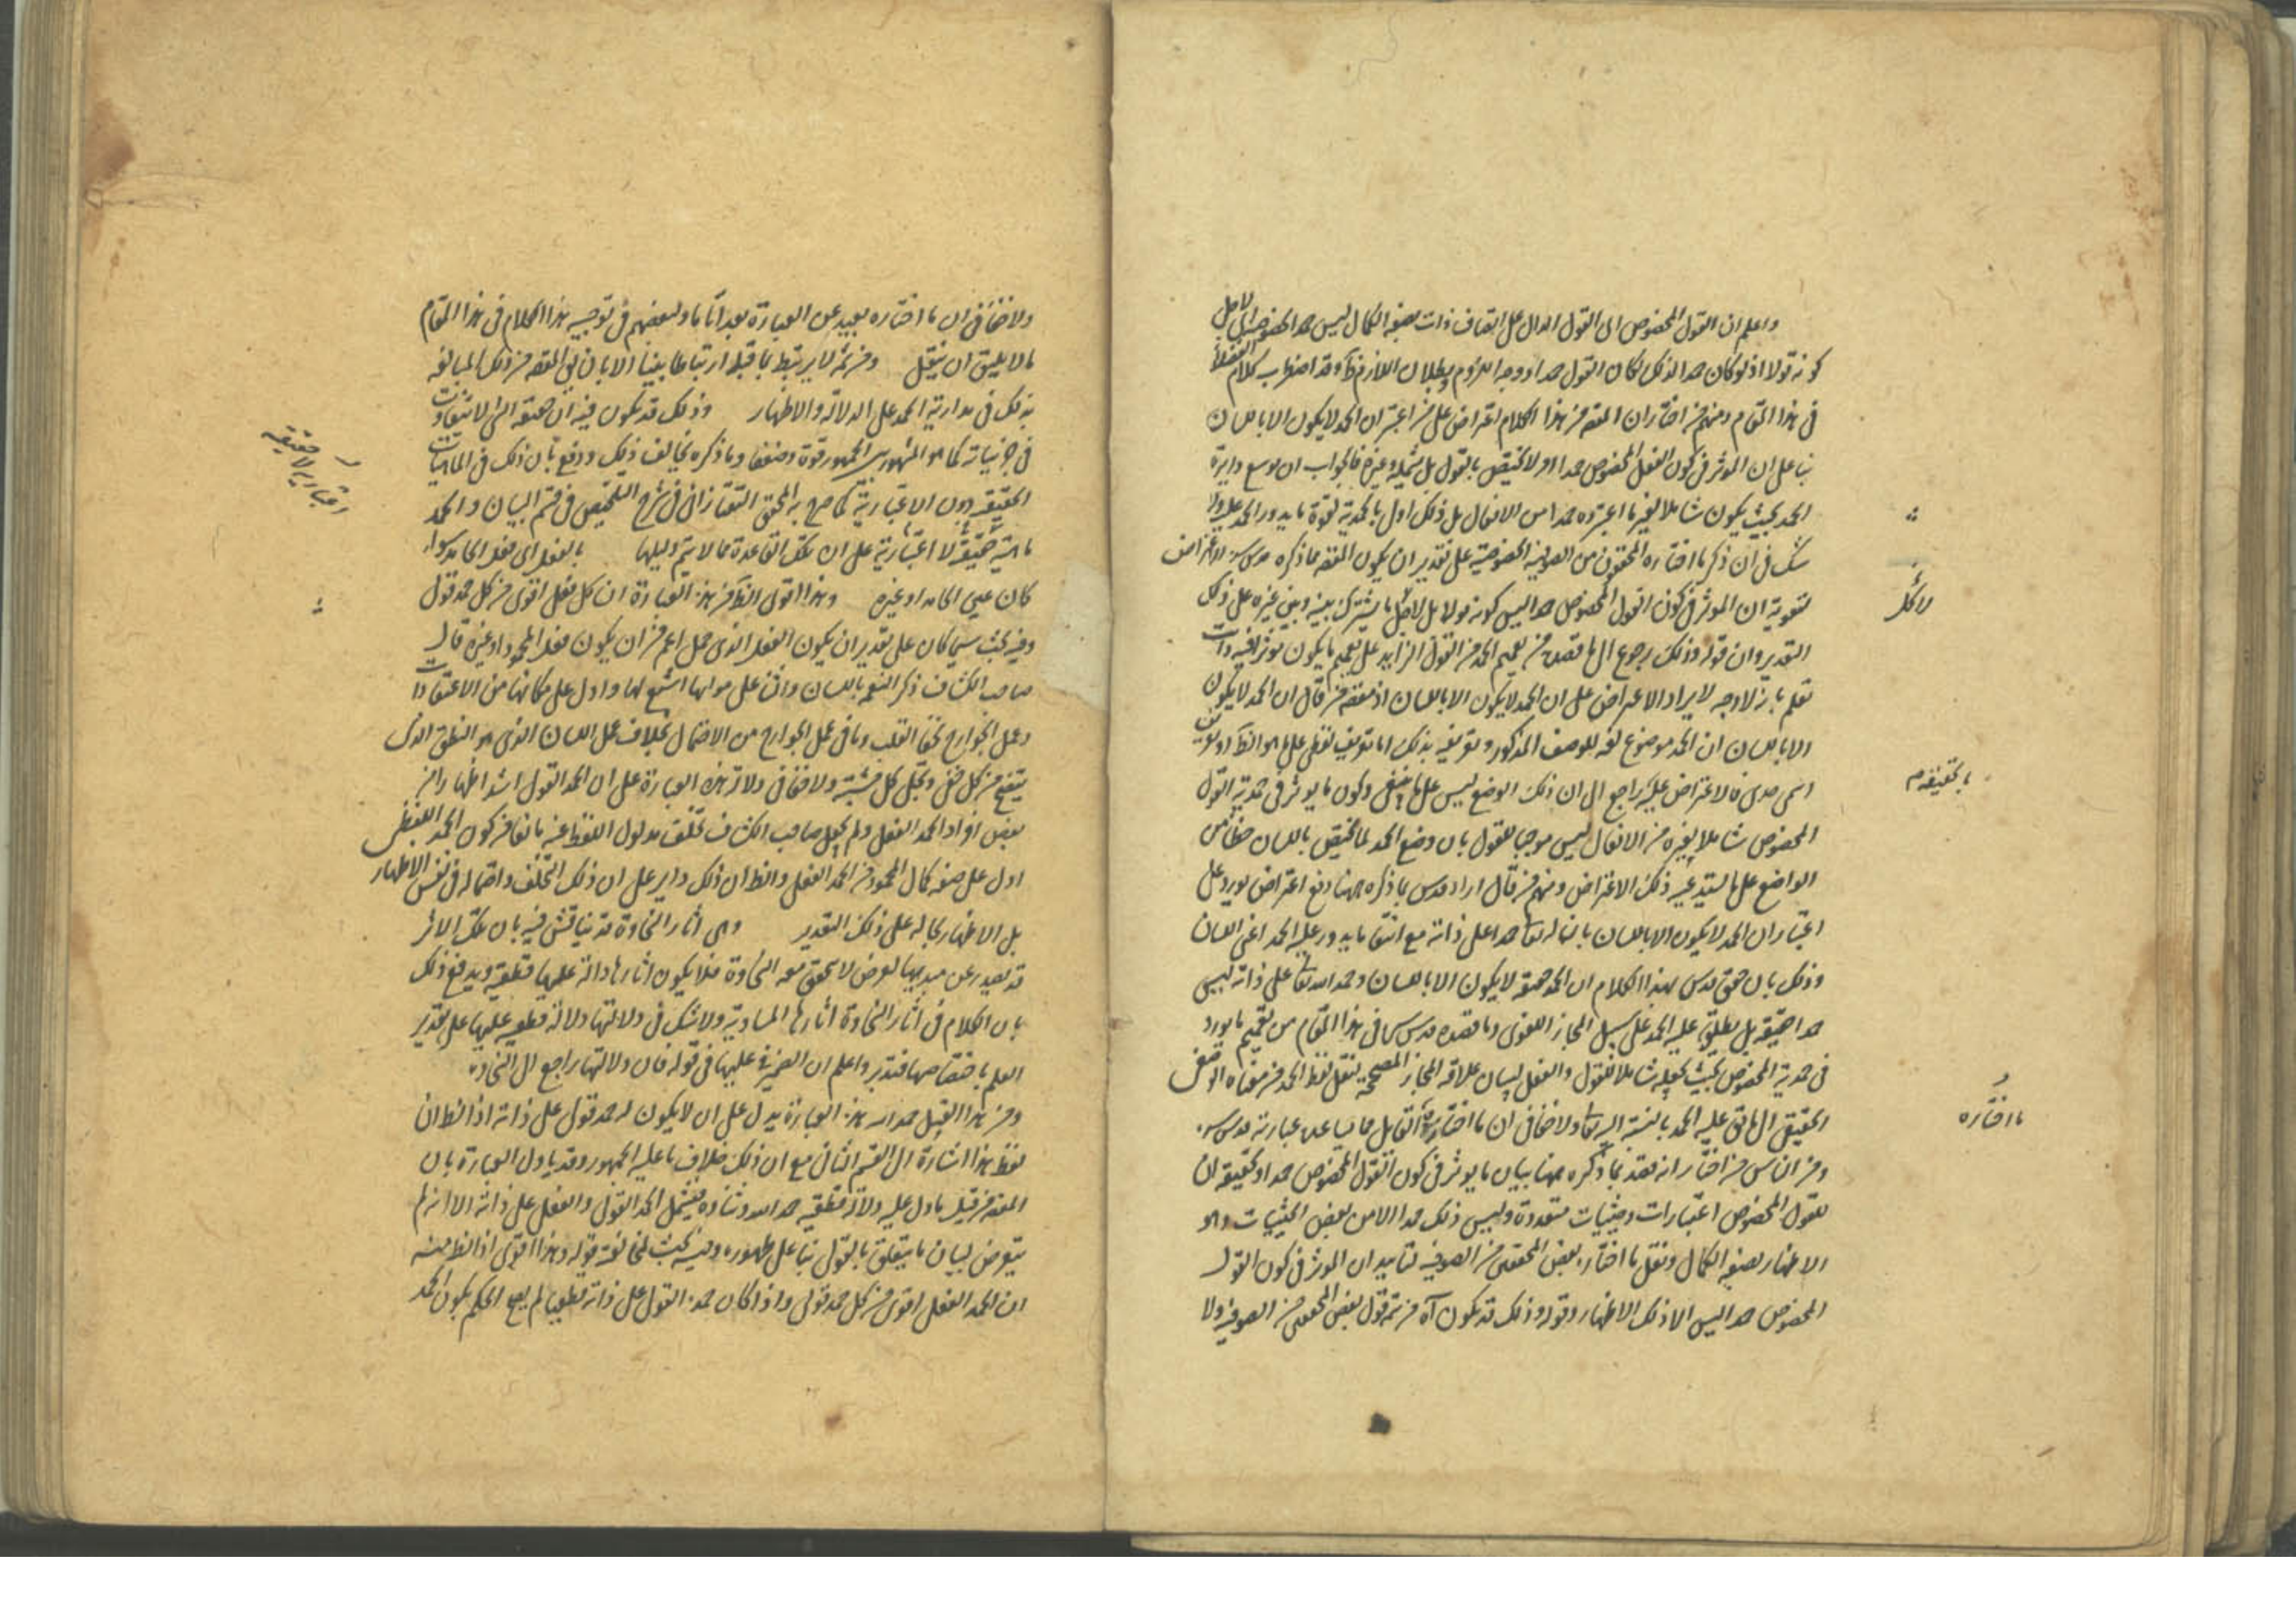 واعلم ان القول المخصوص اى القول الدال على اتصاف ذات بصفة الكمال ليس حمدا لخصوصه اى لاجل
كونه قولا اذ لو كان حمدا لذلك لكان القول حمدا ووجه اللزوم وبطلان اللازم ظ وقد اضطرب كلام الفضلاء
فى هذا المقام ومنهم من اختار ان المقصد من هذا الكلام اعتراض على من اعتبر ان الحمد لا يكون الا باللسان
بناء على ان الموثر فى كون الفعل المخصوص حمدا امر لا يختص بالقول بل يشمله وغيره فالجواب ان يوسع دايرة
الحمد بحيث يكون شاملا لغير ما اعتبروه حمدا من الافعال بل ذلك اولى بالحمدية لقوة ما يدور الحمد عليه ولا
شك فى ان ذكر ما اختاره المحققون من الصوفية على تقدير ان يكون المقصد مما ذكره قدس سره الاعتراض
لتقوية ان الموثر فى كون القول المخصوص حمدا ليس كونه قولا بل لاجل ما يشترك بينه وبين غيره على ذلك
التقدير وان قوله وذلك رجوع الى ما قصده من تعميم الحمد من القول الزايد على تعميم ما يكون موثرا فيه وانت
تعلم بانه لا وجه لايراد الاعتراض على ان الحمد لا يكون الا باللسان اذ مقصد من قال ان الحمد لا يكون
الا باللسان ان الحمد موضوع لغة للوصف المذكور وتعريفه بذلك اما تعريف لفظى على ما هو الظ او تعريف
اسمى فالاعتراض عليه راجع الى ان ذلك الوضع ليس على ما ينبغى وكون ما يوثر فى حمدية القول
المخصوص شاملا لغيره من الافعال ليس موجبا للقول بان وضع الحمد لما يختص باللسان خطأ من
الواضع على ما يستدعيه ذلك الاعتراض ومنهم من قال اراد قدس بما ذكره ههنا دفع اعتراض يورد على
اعتبار ان الحمد لا يكون الا باللسان بان له تعا حمدا على ذاته مع انتفاء ما يدور عليه الحمد اعنى اللسان
وذلك بان حقق قدس بهذا الكلام ان الحمد حقيقة لا يكون الا باللسان وحمد الله تعا على ذاته ليس
حمدا حقيقة بل يطلق عليه الحمد على سبيل المجاز اللغوى وما قصده قدس سره فى هذا المقام من تعميم ما يورد
فى حمدية المخصوص بحيث يجعله شاملا للقول والفعل لبيان علاقة المجاز المصححة لنقل لفظ الحمد من معناه الوضعى
الحقيقى الى ما يطلق عليه الحمد بالنسبة اليه تعا ولا خفا فى ان ما اختاره هذا القايل مما لا يساعده عبارته قدس سره
ومن الناس من اختار انه قصد بما ذكره ههنا بيان ما يوثر فى كون القول المخصوص حمدا وتحقيقه ان
للقول المخصوص اعتبارات وحيثيات متعددة وليس ذلك حمدا الا من بعض الحيثيات وهو
الاظهار لصفة الكمال ونقل ما اختاره بعض المحققين من الصوفية لتاييد ان الموثر فى كون القول
المخصوص حمدا ليس الا ذلك الاظهار وقوله وذلك قد يكون آه من تتمة قول بعض المحققين من الصوفية ولا
لا كل
ما اختاره
ولا خفا فى ان ما اختاره بعيد عن العبارة بعدا تاما ولبعضهم فى توجيه هذا الكلام فى هذا المقام
ما لا يليق ان ينقل ومن ثمة لا يرتبط بما قبله ارتباطا بينا الا بان يق المقصد من ذلك المبالغة
بذلك فى مدارية الحمد على الدلالة والاظهار وذلك قد يكون فيه ان حقيقة الشئ لا يتفاوت
فى جزئياته كما هو المشهور بين الجمهور قوة وضعفا وما ذكره يخالف ذلك ودفع بان ذلك فى الماهيات
الحقيقية دون الاعتبارية كما صرح به المحقق التفتازانى فى شرح التلخيص فى قسم البيان والحمد
ماهية حقيقة لا اعتبارية على ان تلك القاعدة مما لا يتم دليلها بالفعل اى فعل الحامد سواء
كان عين الحامد او غيره وهذا اقوى الظ من هذه العبارة ان كل فعل اقوى من كل حمد قول
وفيه بحث سيما كان على تقدير ان يكون الفعل الذى حمل اعم من ان يكون فعل المحمود او غيره قال
صاحب الكشاف ذكر النعم باللسان والثنا على موليها اشيع لها وادل على مكانها من الاعتقادات
وعمل الجوارح لخفا القلب وما فى عمل الجوارح من الاحتمال بخلاف عمل اللسان الذى هو النطق الذى
يفصح من كل خفى ويجلى كل مشتبه ولا خفا فى دلالة هذه العبارة على ان الحمد القولى اشد اظهارا من
بعض افراد الحمد الفعلى ولم يجعل صاحب الكشاف تخلف مدلول اللفظ عنه مانعا من كون الحمد اللفظى
ادل على صفة كمال المحمود من الحمد الفعلى والظ ان ذلك داير على ان ذلك التخلف واحتماله فى نفس الاظهار
بل الاظهار بحاله على ذلك التقدير وهى اثار السخاوة قد يناقش فيه بان تلك الاثر
قد يصدر عن مبديها لعرض لا يتحقق معه السخاوة فلا يكون اثارها دالة عليها قطعية ويدفع ذلك
بان الكلام فى اثار السخاوة اثارها المساوية ولا شك فى دلالتها دلالة قطعية عليها على تقدير
العلم باختصاصها فتدبر واعلم ان الضمير فى عليها فى قوله فان دلالتها راجع الى السخاوة
ومن هذا القبيل حمد الله هذه العبارة يدل على ان لا يكون له حمد قول على ذاته اذ الظ ان
لفظ هذا اشارة الى القسم الثانى مع ان ذلك خلاف ما عليه الجمهور وقد ياول العبارة بان
المقصد من قبيل ما دل عليه دلالة قطعية حمد الله وثناوه فيشمل الحمد القول والفعل على ذاته الا انه لم
يتعرض لبيان ما يتعلق بالقول بناء على ظهوره وفيه بحث لمخالفته قوله وهذا اقوى اذ الظ منه
ان الحمد الفعلى اقوى من كل حمد قولى واذا كان حمده القول على ذاته قطعيا لم يصح الحكم بكون الحمد